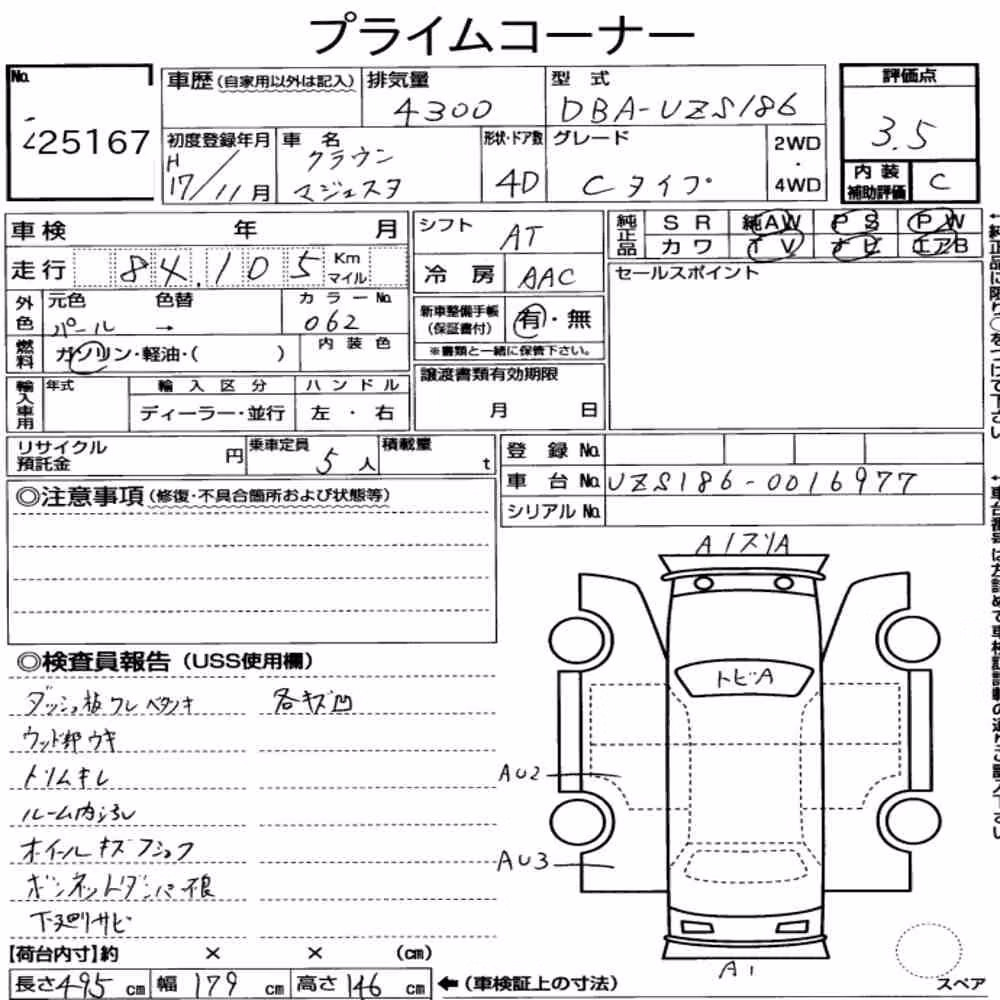 プライムコーナー
No. 25167
車歴(自家用以外は記入) 排気量 4300 型式 DBA-UZS186 評価点 3.5
初度登録年月 H17/11月 車名 クラウン マジェスタ 形状・ドア数 4D グレード Cタイプ 2WD・4WD
内装補助評価 C
車検 年 月
シフト AT
純正品 SR 純AW PS PW
カワ TV ナビ エアB
走行 84,105 Km マイル
冷房 AAC
セールスポイント
外色 元色 パール 色替 → カラーNo. 062
新車整備手帳(保証書付) 有・無
※書類と一緒に保管下さい。
燃料 ガソリン・軽油・( ) 内装色
譲渡書類有効期限 月 日
輸入車用 年式 輸入区分 ハンドル
ディーラー・並行 左・右
リサイクル預託金 円 乗車定員 5人 積載量 t
登録No.
車台No. UZS186-0016977
シリアルNo.
◎注意事項(修復・不具合箇所および状態等)
A1スリA
◎検査員報告(USS使用欄)
ダッシュ板ワレベタツキ 各キズ凹
トビA
ウッド部ウキ
トリムキレ
AU2
ルーム内汚レ
オイールキズフショク
AU3
ボンネットダンパ不良
下廻リサビ
【荷台内寸】約 × × (cm)
長さ495cm 幅179cm 高さ146cm ←(車検証上の寸法)
A1
スペア